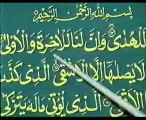 بِسْمِ اللَّهِ الرَّحْمَٰنِ الرَّحِيمِ
لَلْهُدَىٰ وَإِنَّ لَنَا لَلْآخِرَةَ وَالْأُولَىٰ
لَا يَصْلَاهَا إِلَّا الْأَشْقَى الَّذِي كَذَّبَ
الْأَتْقَى الَّذِي يُؤْتِي مَالَهُ يَتَزَكَّىٰ